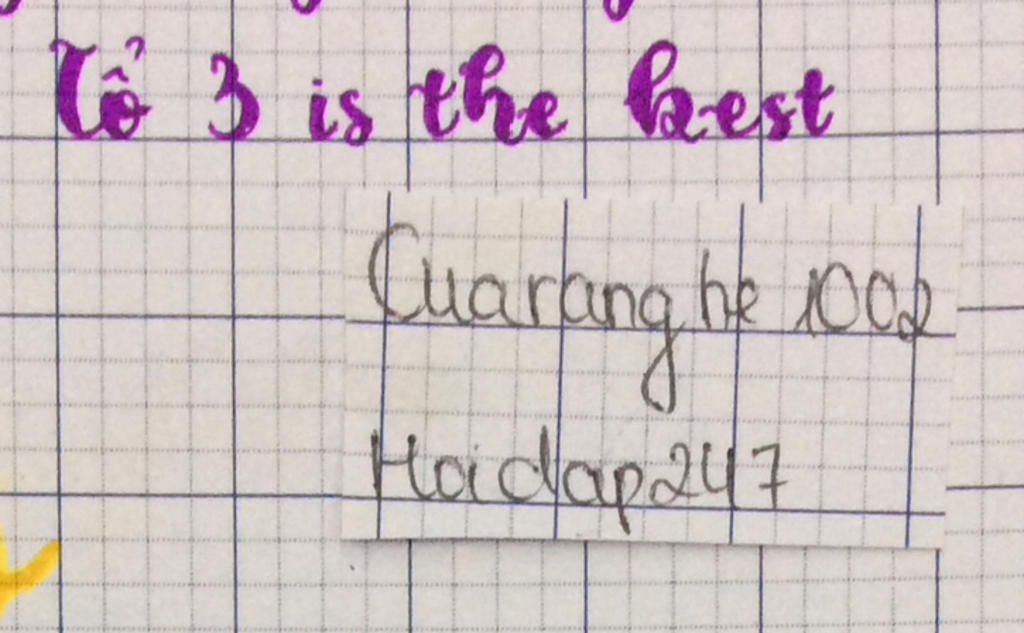 Tổ 3 is the best
Cuaranghe 1002
Hoidap247